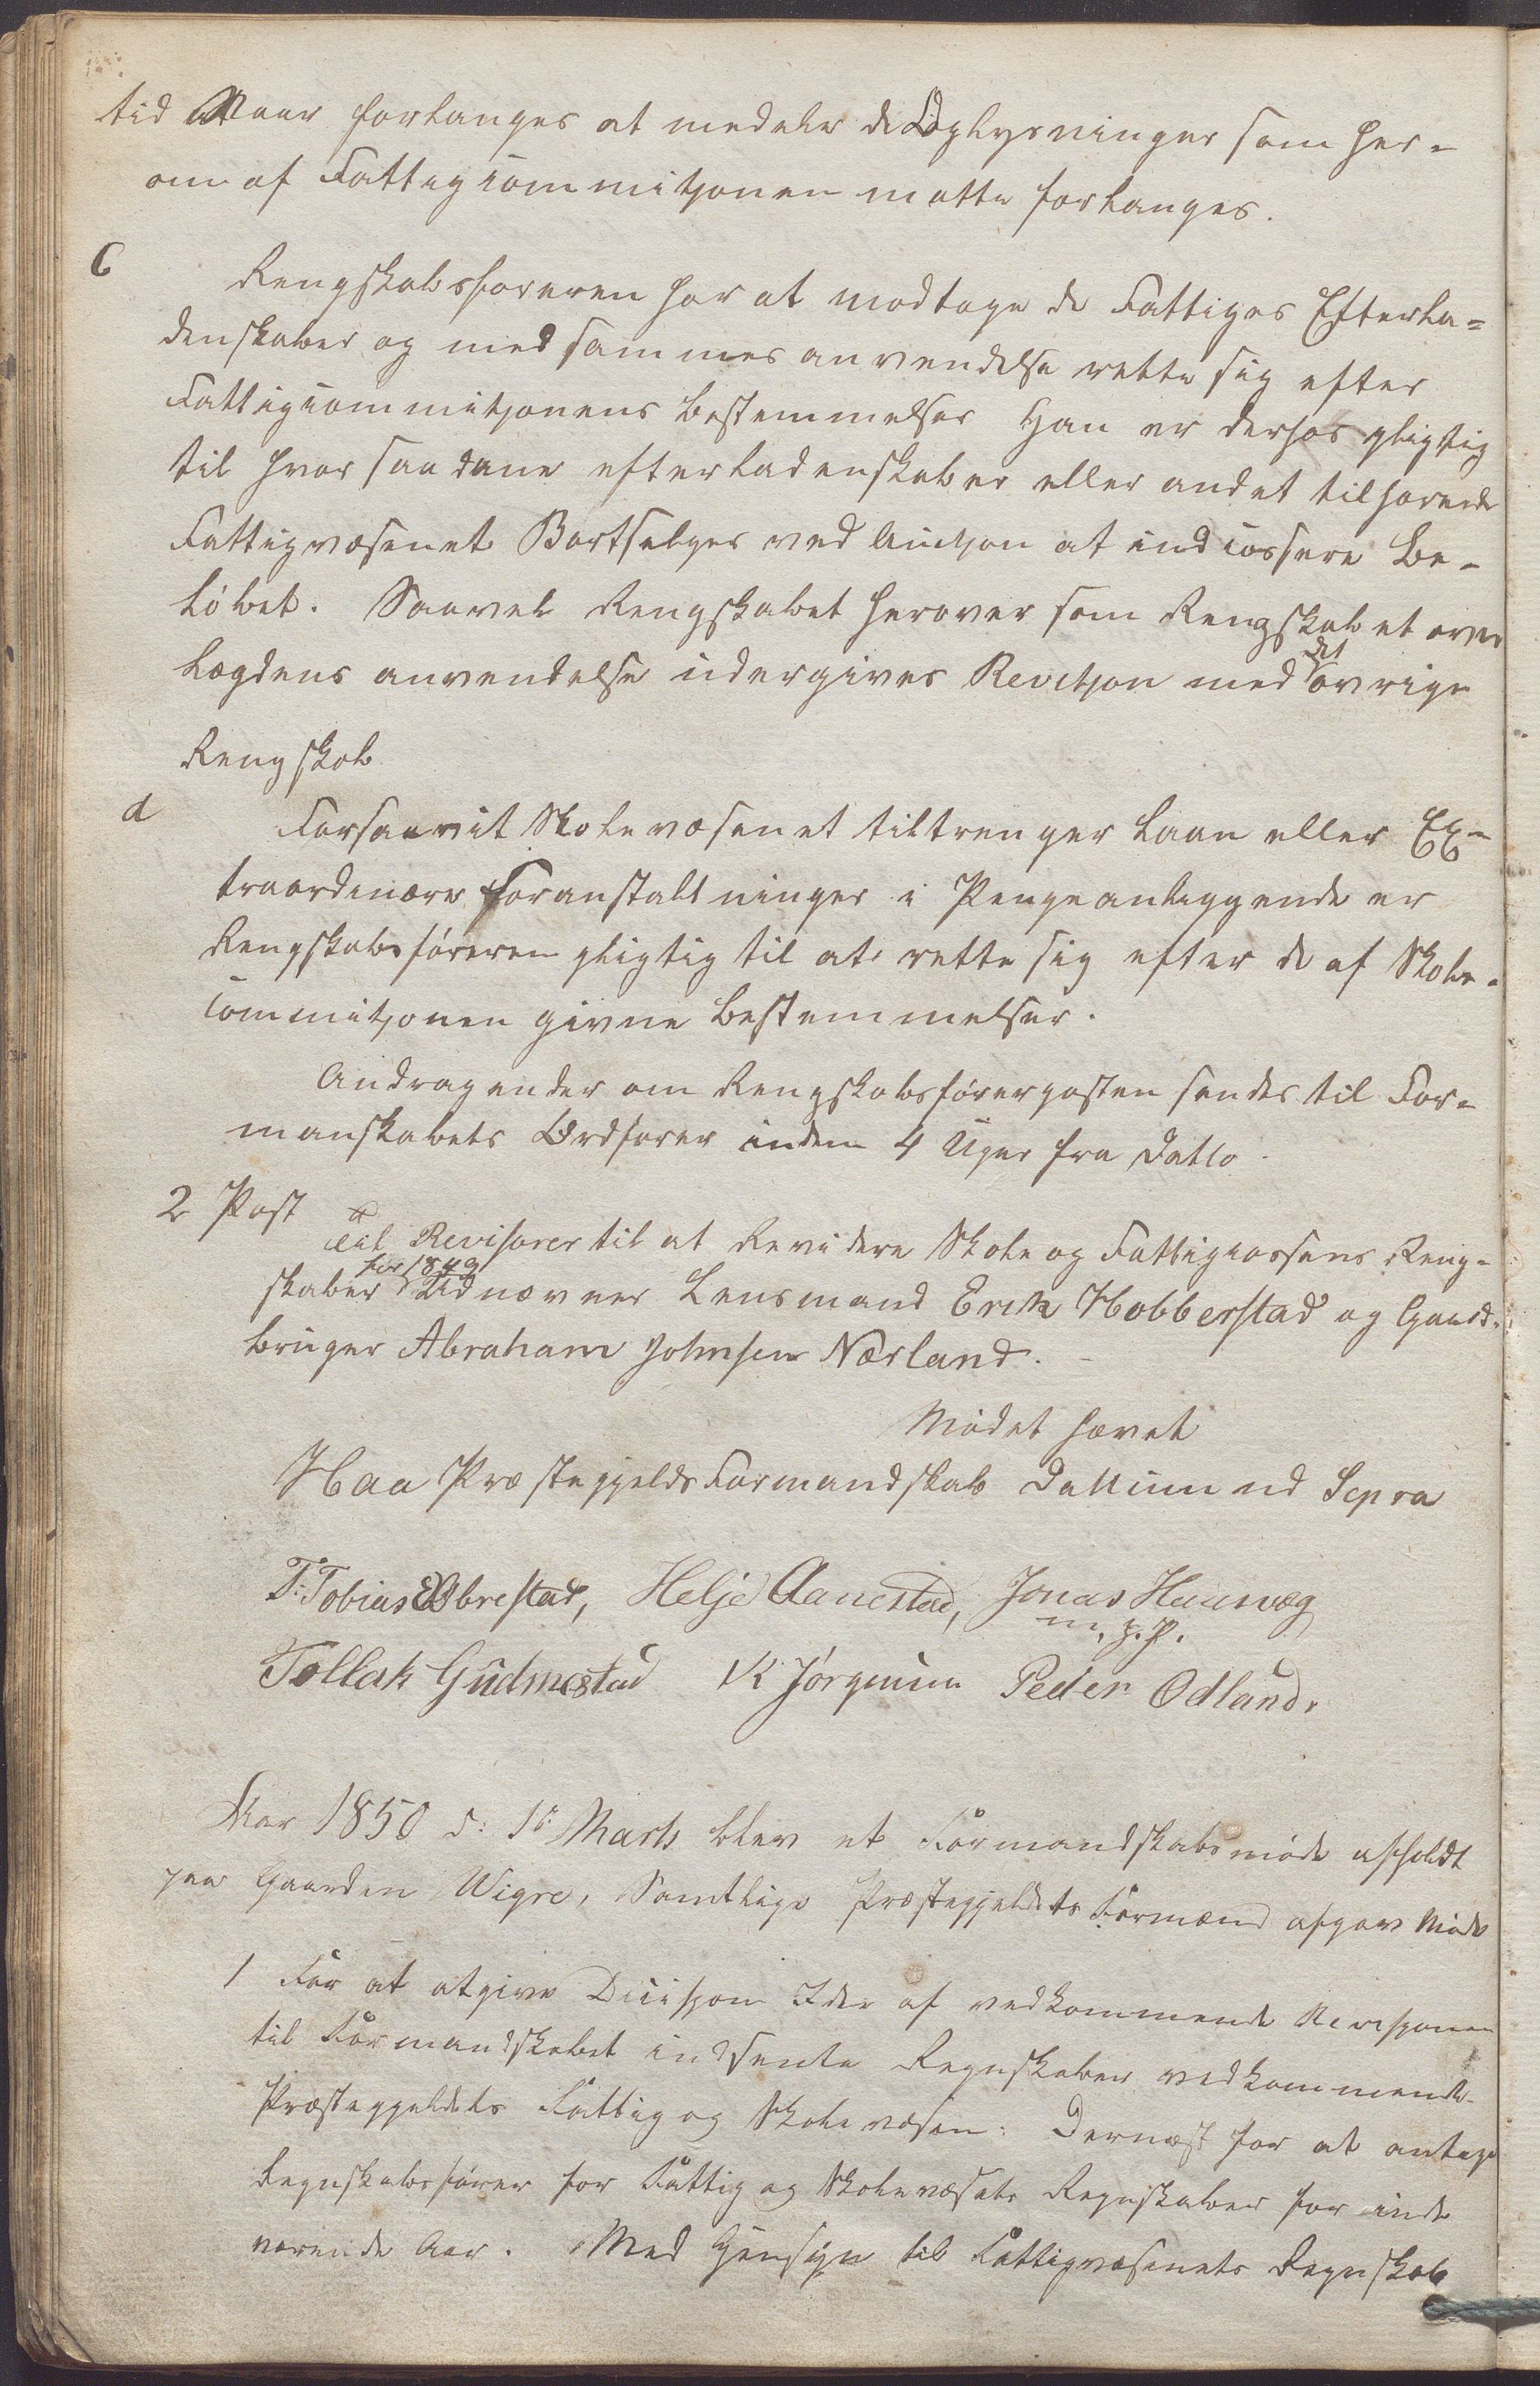 tid Naar forlanges at medele de Oplysninger som her-
om af Fattigcommitjonen matte forlanges.
C Rengskabsforeren har at modtage de Fattiges Efterla-
denskaber og med sammes anvendelse rette sig efter
Fattigcommitjonens bestemmelser Han er derhos pligtig
til hvor saadane efterladenskaber eller andet tilhorende
Fattigvæsenet Bortselges ved Auctjon at indcassere Be-
løbet. Saavel Rengskabet herover som Rengskabet over
det
Lægdens anvendelse undergives Revitjon med øvrige
Rengskab
d Forsaavit Skolevæsenet tiltrenger Laan eller Ex-
traordinære Foranstaltninger i Pengeanliggende er
Rengskabsføreren pligtig til at rette sig efter de af Skole-
commitjonen givne bestemmelser.
Andragender om Rengskabsførerposten sendes til For-
manskabets Ordfører inden 4 Uger fra Datto.
2 Post
Til Revisorer til at Revidere Skole og Fattigcassens Reng-
for 1849
skaber Udnævnes Lensmand Erik Hobberstad og Gaard-
bruger Abraham Johnsen Nærland.
Mødet hævet
Haa Præstegjelds Formandskab Dattum ud Supra
T. Tobias Obrestad, Helje Aanestad, Jonas Hauvæg
m. f. P.
Tollak Gudmestad K Jørgensen Peder Odland.
Aar 1850 d: 1ste Marts blev et Formandskabsmøde afholdt
paa Gaarden Wigre, Samtlige Præstegjeldets Formænd afgav Møde
1 For at afgive Dicisjon I de af vedkommende Revisjonen
til Formandskabet indsente Regnskaber vedkommende
Præstegjeldets Fattig og Skolevæsen: Dernæst for at antage
Regnskabsfører for Fattig og Skolevæsets Regnskaber for inde
værende Aar. Med Hensyn til Fattigvæsenets Regnskab